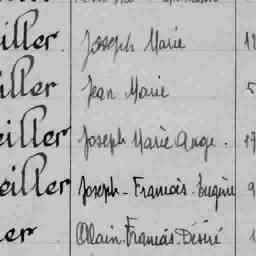 iller Joseph Marie 1
iller Jean Marie 5
eiller Joseph Marie Ange. 17
eiller Joseph-François-Eugène 9
er Alain-François-Désiré 1